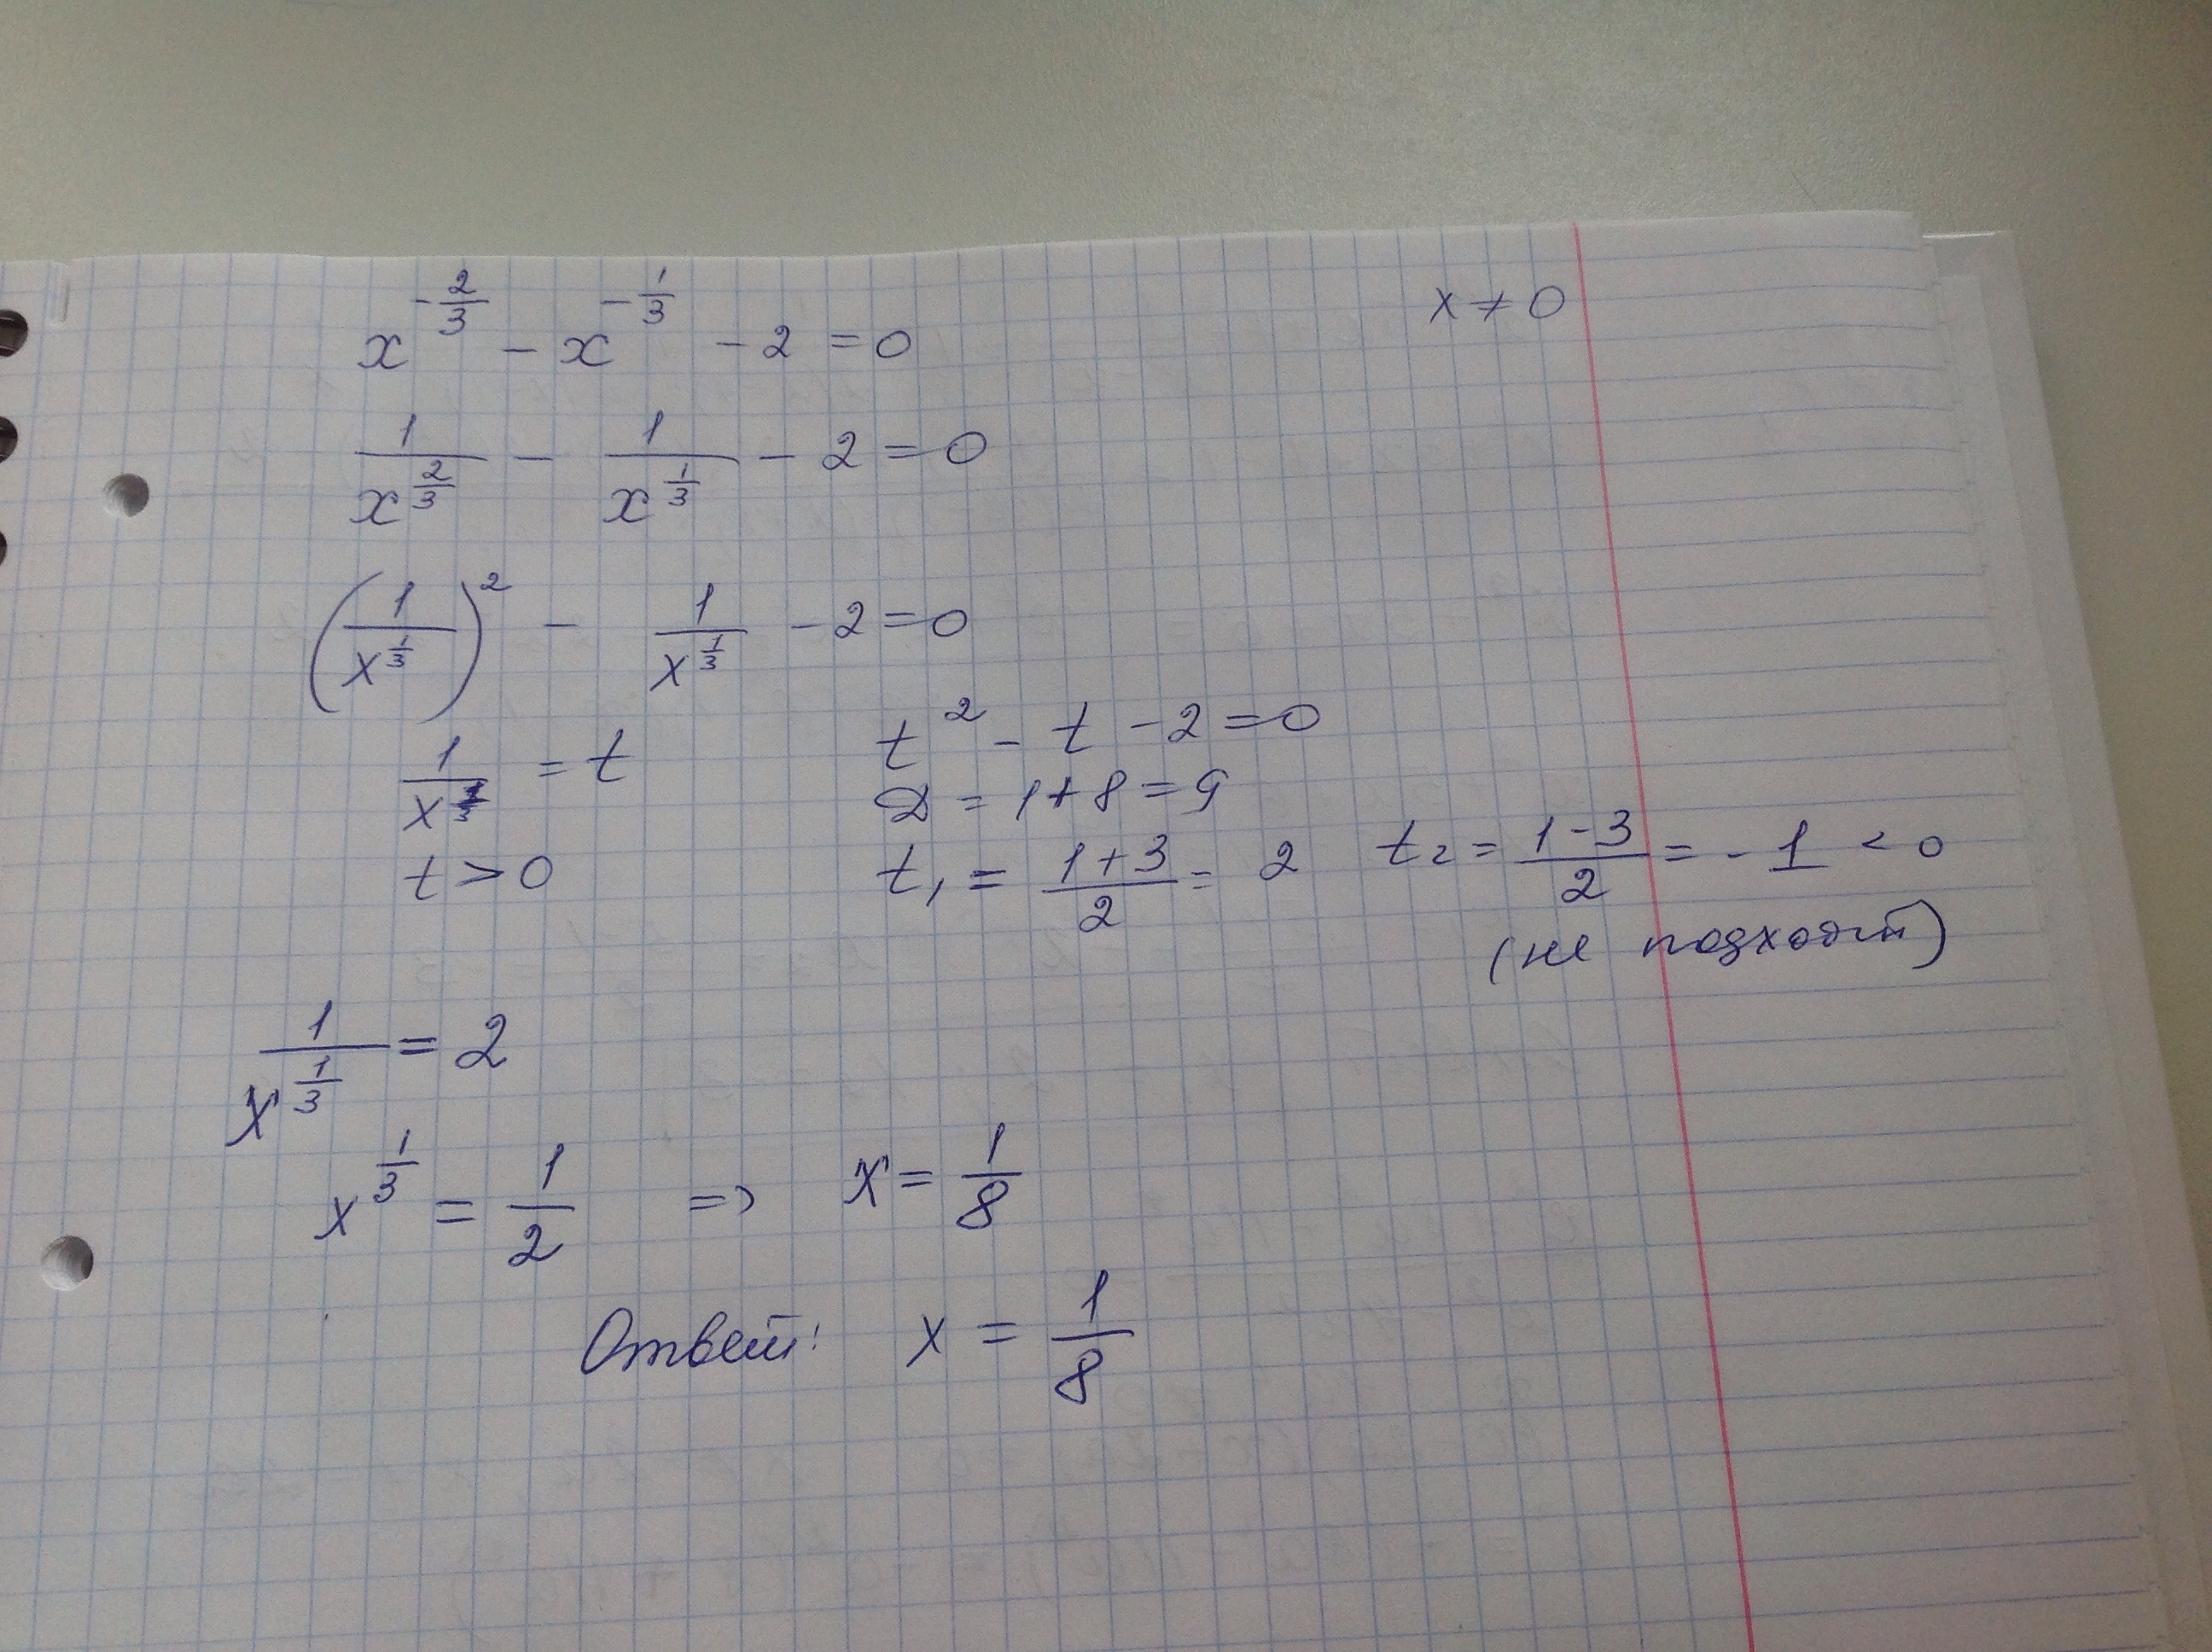 x^{-2/3} - x^{-1/3} - 2 = 0 x ≠ 0
1/x^{2/3} - 1/x^{1/3} - 2 = 0
(1/x^{1/3})^2 - 1/x^{1/3} - 2 = 0
1/x^{1/3} = t t^2 - t - 2 = 0
D = 1 + 8 = 9
t > 0 t_1 = (1+3)/2 = 2 t_2 = (1-3)/2 = -1 < 0
(не подходит)
1/x^{1/3} = 2
x^{1/3} = 1/2 => x = 1/8
Ответ: x = 1/8